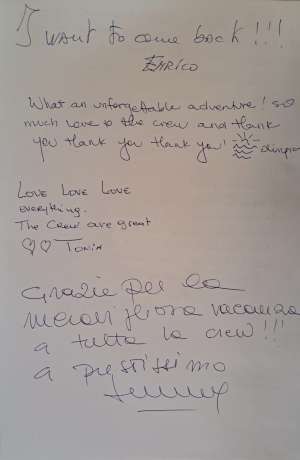 I want to come back!!!
Enrico
What an unforgettable adventure! so
much love to the crew and thank
you thank you thank you!
Love Love Love
everything.
The Crew are great
♡♡ Tonia
Grazie per la
meravigliosa vacanza
a tutta la crew!!!
a prestissimo